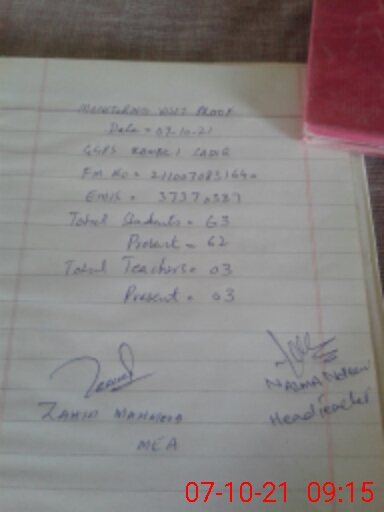 MONITORING VISIT PROOF
Date = 07-10-21
GGPS
FM No =
EMIS = 37370387
Total Students = 63
Present = 62
Total Teachers = 03
Present = 03
NAJMA
ZAHID MAHMOOD
Head Teacher
MEA
07-10-21 09:15